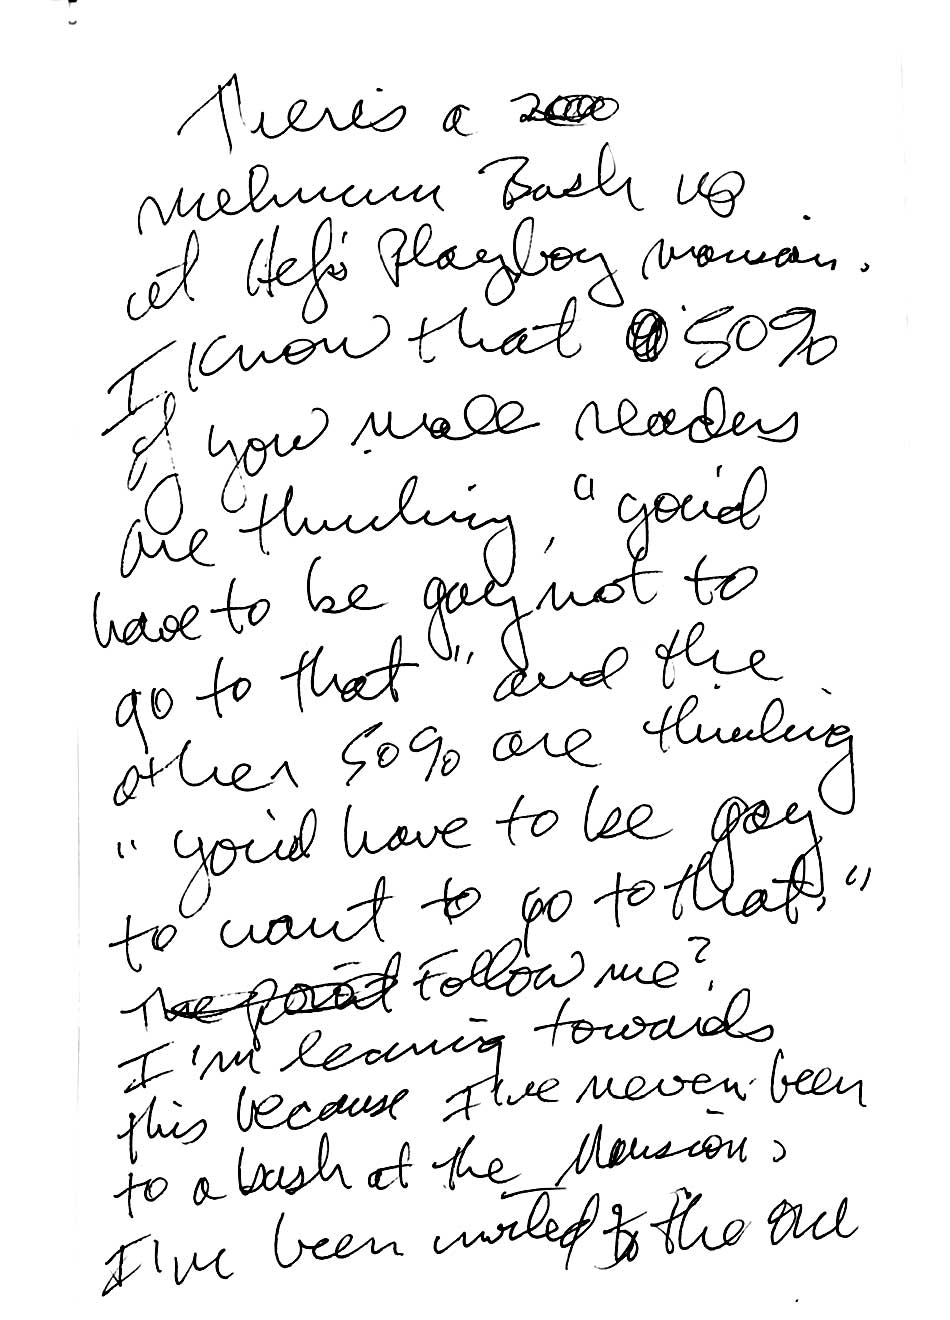 There's a 2000
Melinium Bash up
at Hef's Playboy mansion.
I know that 50%
of you male readers
are thinking, "you'd
have to be gay not to
go to that" and the
other 50% are thinking
"you'd have to be gay
to want to go to that."
The point Follow me?
I'm leaning towards
this because I've never been
to a bash at the Mansion.
I've been invited to the one